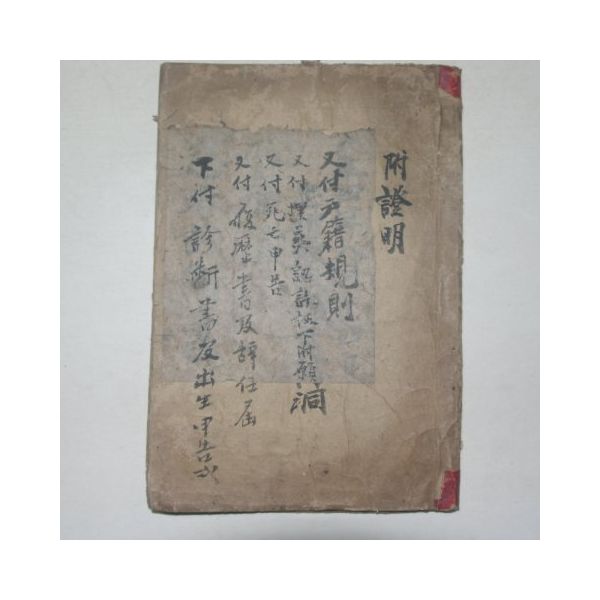 附證明
又付戶籍規則
又付埋葬認許証下附願
洞
又付死亡申告
又付履歷書及辭任届
下付診斷書及出生申告式